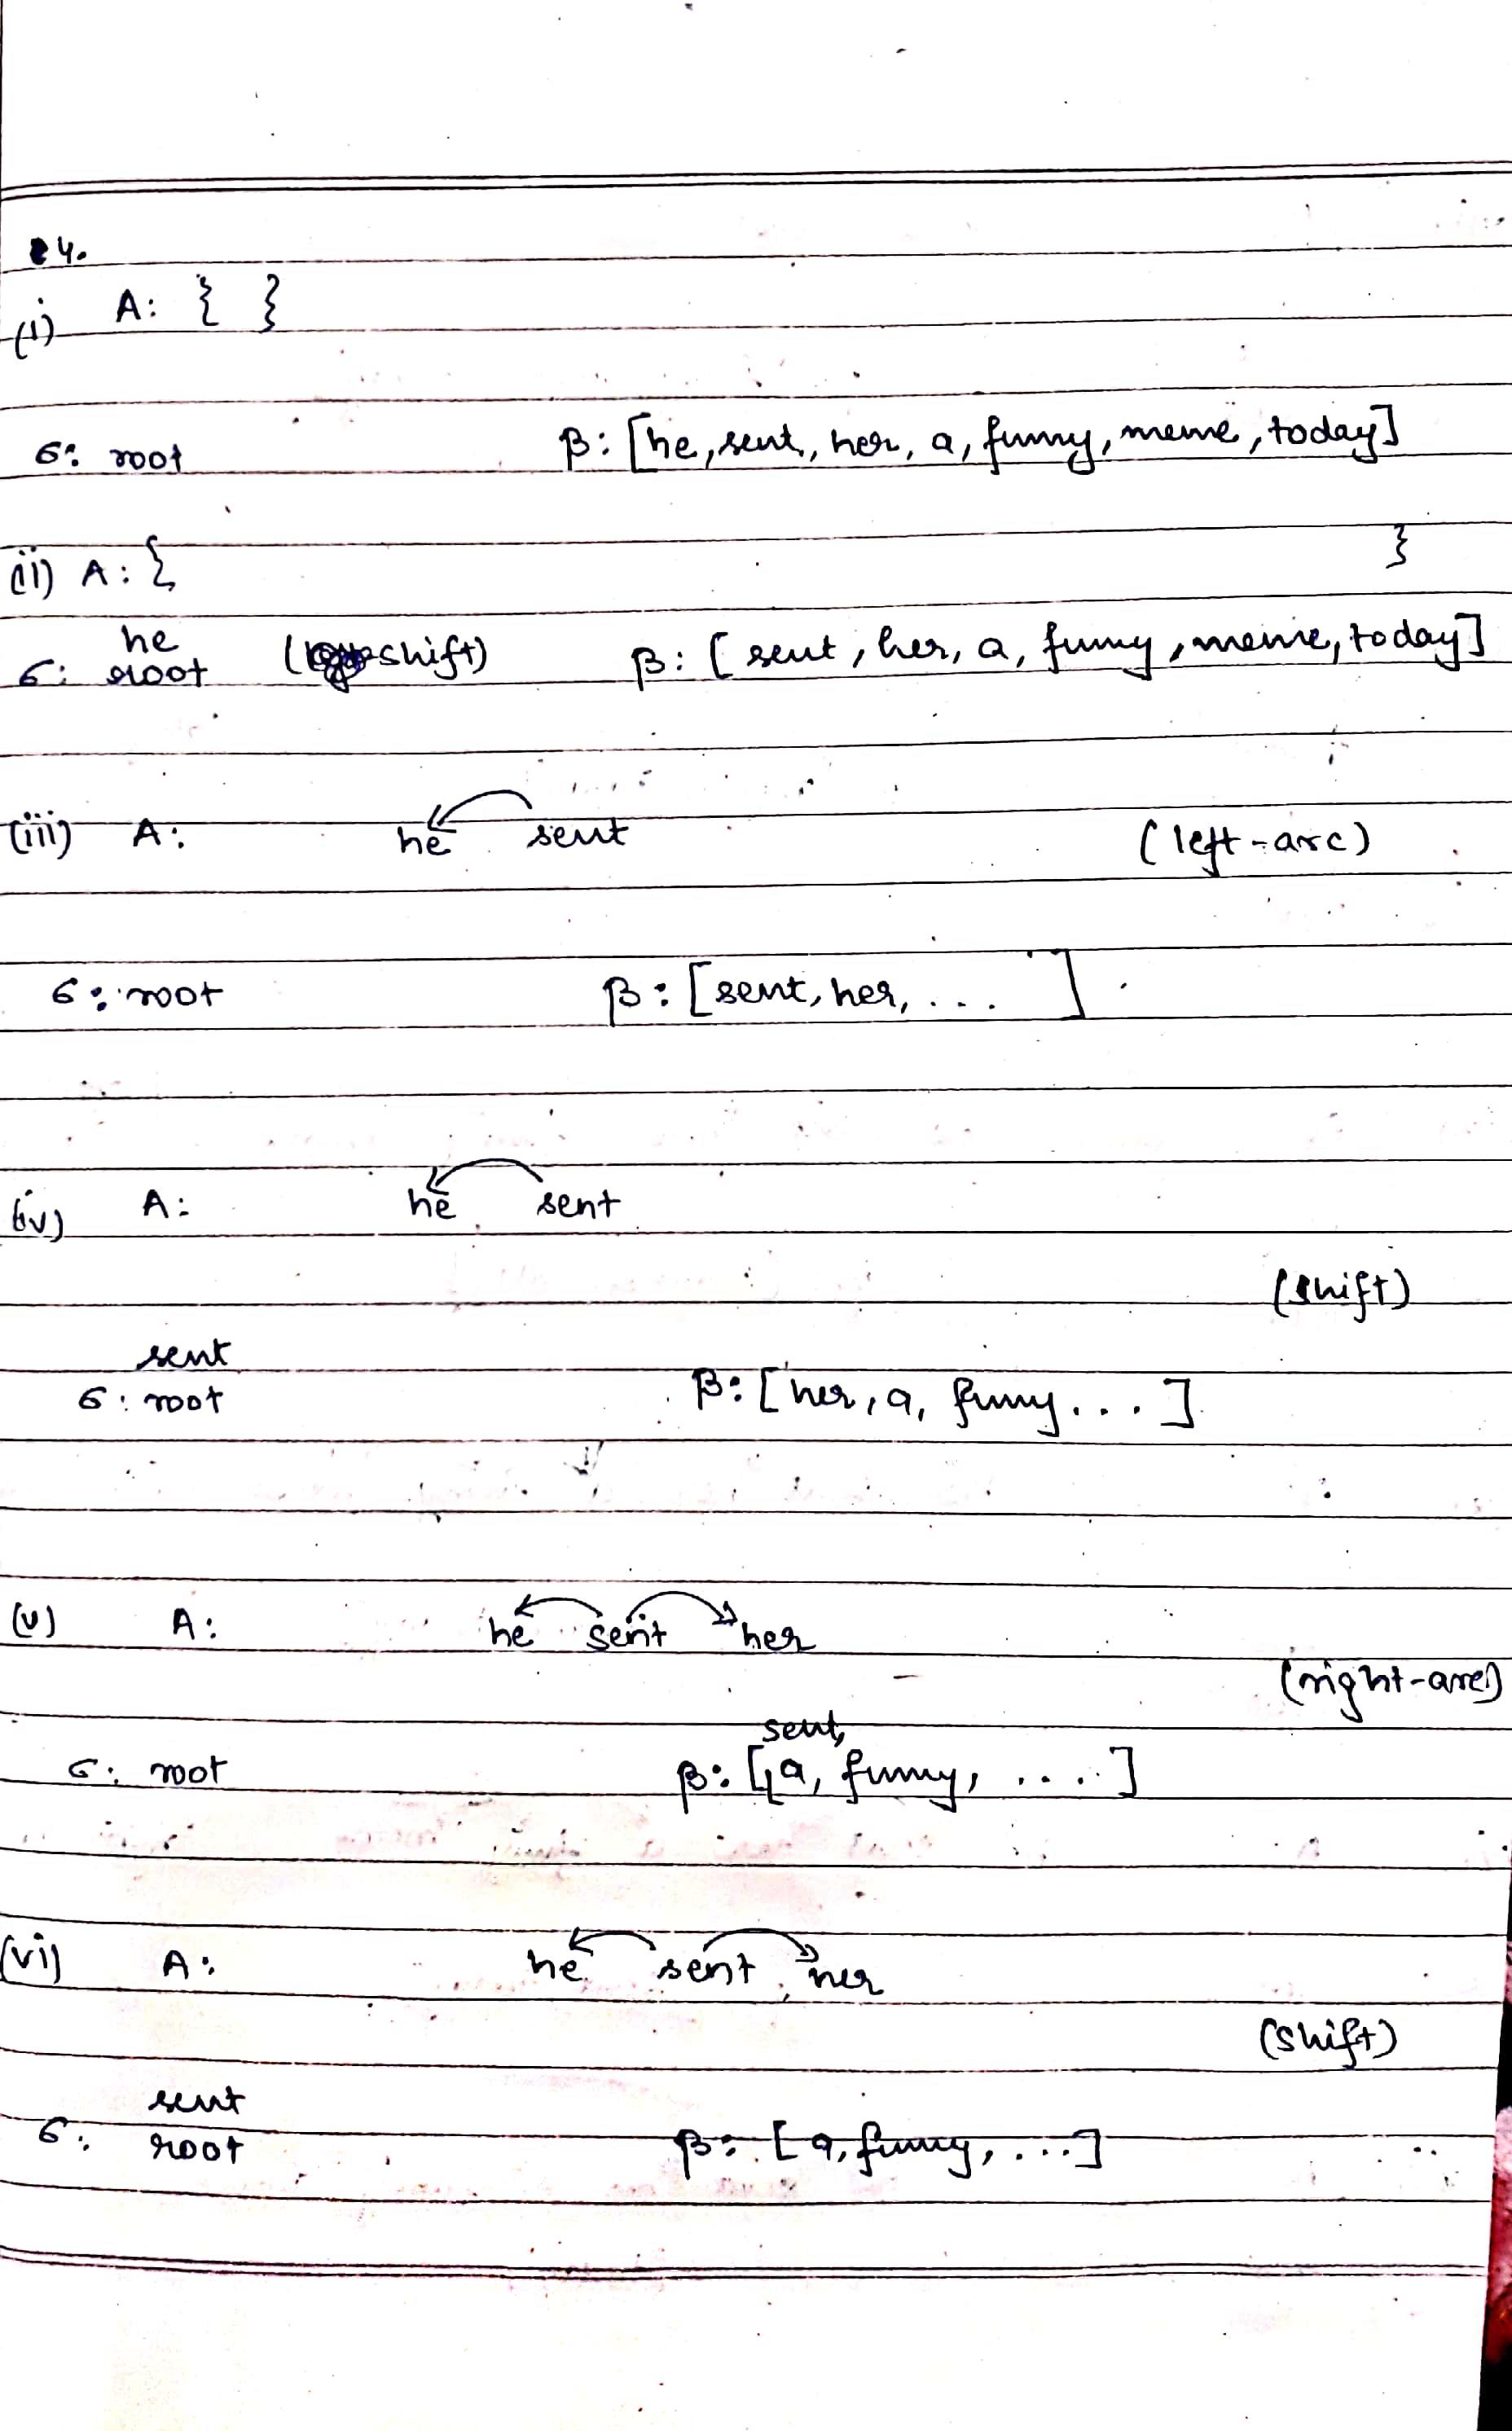 4.
(i) A: { }
σ: root β: [he, sent, her, a, funny, meme, today]
(ii) A: { }
he
σ: root (shift) β: [sent, her, a, funny, meme, today]
(iii) A: he sent (left-arc)
σ: root β: [sent, her, ... ]
(iv) A: he sent
(shift)
sent
σ: root β: [her, a, funny... ]
(v) A: he sent her
(right-arc)
sent,
σ: root β: [a, funny, .... ]
(vi) A: he sent her
(shift)
sent
σ: root β: [a, funny, ...]